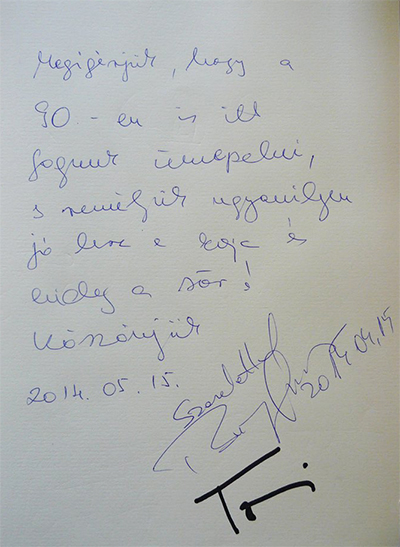 Megígérjük, hogy a
90-en is itt
fogunk ünnepelni,
s reméljük ugyanilyen
jó lesz a kaja és
hideg a sör!
Köszönjük
2014. 05. 15.
Szeretettel
2014.04.15
Toni